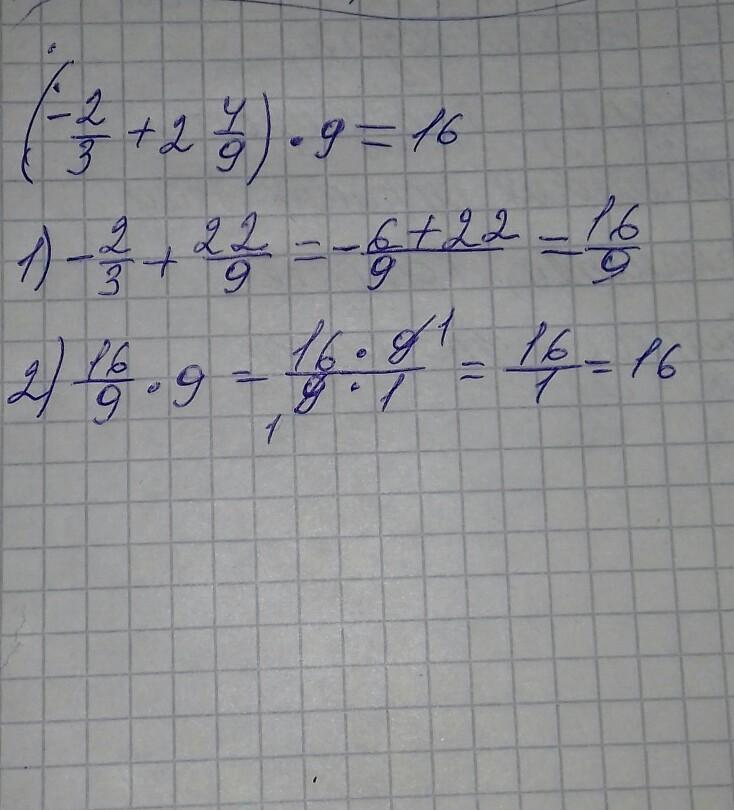 (-2/3 + 2 4/9) · 9 = 16
1) -2/3 + 22/9 = -6+22/9 = 16/9
2) 16/9 · 9 = 16 · 9 1/9 · 1 1 = 16/1 = 16